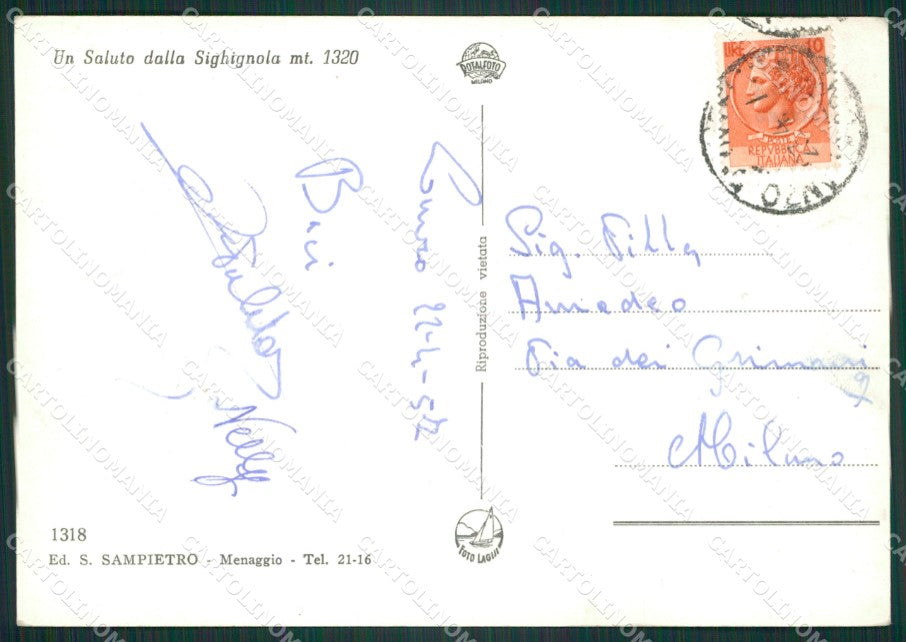 Un Saluto dalla Sighignola mt. 1320
ROTALFOTO
MILANO
LIRE 10
POSTE
REPVBBLICA
ITALIANA
Baci
Nelly
22-4-57
Riproduzione vietata
Sig. Pilla
Amedeo
Via dei Grimani 9
Milano
1318
Ed. S. SAMPIETRO - Menaggio - Tel. 21-16
FOTO LAGHI
CARTOLINOMANIA